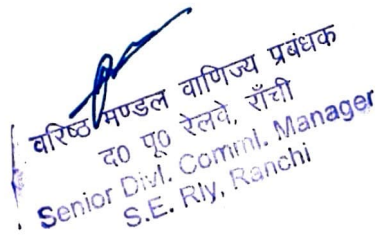 वरिष्ठ मण्डल वाणिज्य प्रबंधक
द0 पू0 रेलवे, राँची
Senior Divl. Comml. Manager
S.E. Rly, Ranchi